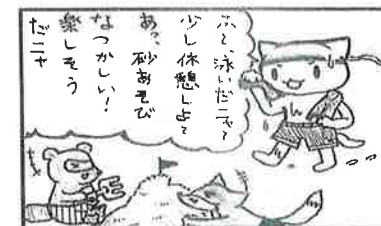 ふぅ、泳いだニャー
少し休憩しよ〜
あっ、砂あそび
なつかしい!
楽しそう
だニャ